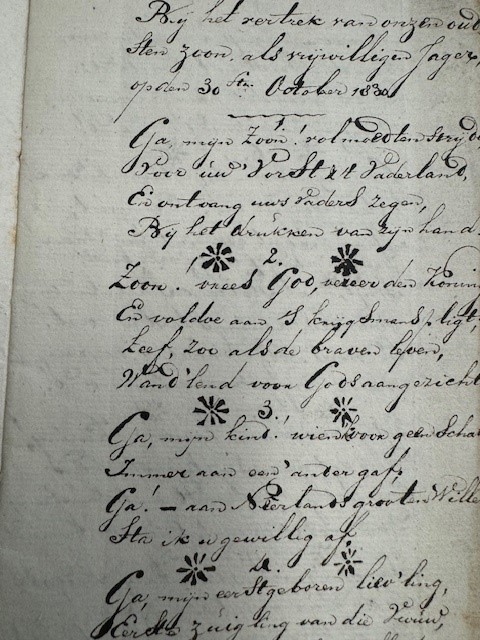 Bij het vertrek van onzen oud
sten zoon, als vrijwilligen Jager,
op den 30sten October 1830
1.
Ga, mijn Zoon! vol moed ten strijd
Voor uw' Vorst & 't Vaderland,
En ontvang uws Vaders zegen,
Bij het drukken van zijn hand.
2.
Zoon! vrees God, vereer den Konin
En voldoe aan 's krijgsmans pligt,
Leef, zoo als de braven leven,
Wand'lend voor Gods aangezicht
3.
Ga, mijn kind! wien 'k voor geen Scha
Immer aan een' ander gaf,
Ga! – aan Neerlands grooten Wille
Sta ik u gewillig af,
4.
Ga, mijn eerstgeboren liev'ling,
Eerste zuigling van die Vrouw,